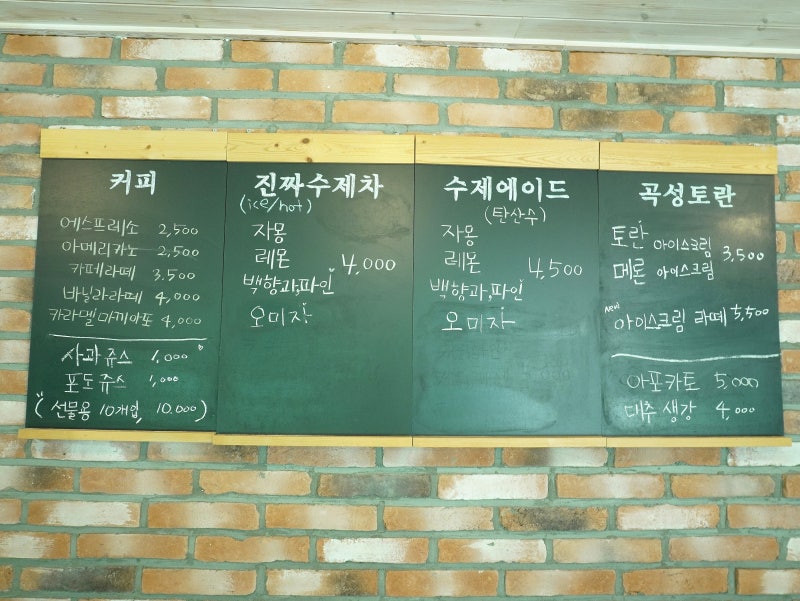 커피
에스프레소 2,500
아메리카노 2,500
카페라떼 3,500
바닐라라떼 4,000
카라멜마끼아또 4,000
사과 쥬스 1,000
포도 쥬스 1,000
(선물용 10개입, 10,000)
진짜수제차
(ice/hot)
자몽
레몬 4,000
백향과,파인
오미자
수제에이드
(탄산수)
자몽
레몬 4,500
백향과,파인
오미자
곡성토란
토란 아이스크림 3,500
메론 아이스크림
new
아이스크림 라떼 5,500
아포카토 5,000
대추 생강 4,000